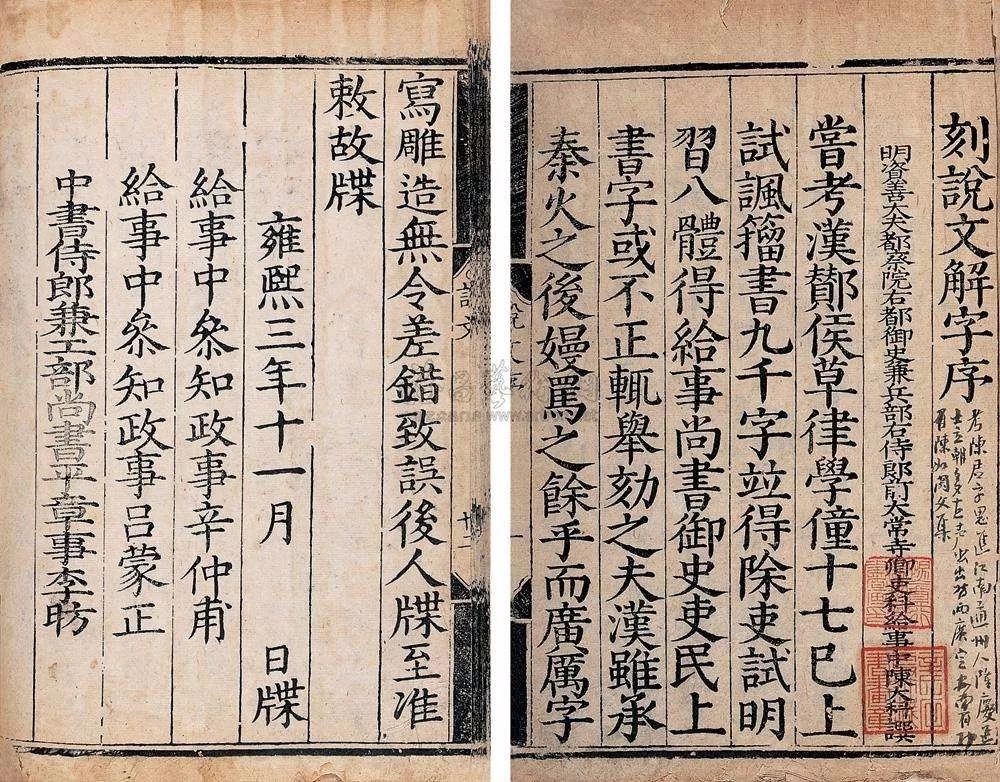 刻說文解字序
考陳君字思進江南通州人隆慶進
陳如岡文集
明資善大夫都察院右都御史兼兵部右侍郎前太常寺卿吏科給事中陳大科撰
嘗考漢酇侯草律學僮十七已上
試諷籀書九千字竝得除吏試明
習八體得給事尚書御史吏民上
書字或不正輒舉劾之夫漢雖承
秦火之後嫚罵之餘乎而廣厲字
說文序
一
說文
十二
寫雕造無令差錯致誤後人牒至准
敕故牒
雍熙三年十一月 日牒
給事中叅知政事辛仲甫
給事中叅知政事吕蒙正
中書侍郎兼工部尚書平章事李昉